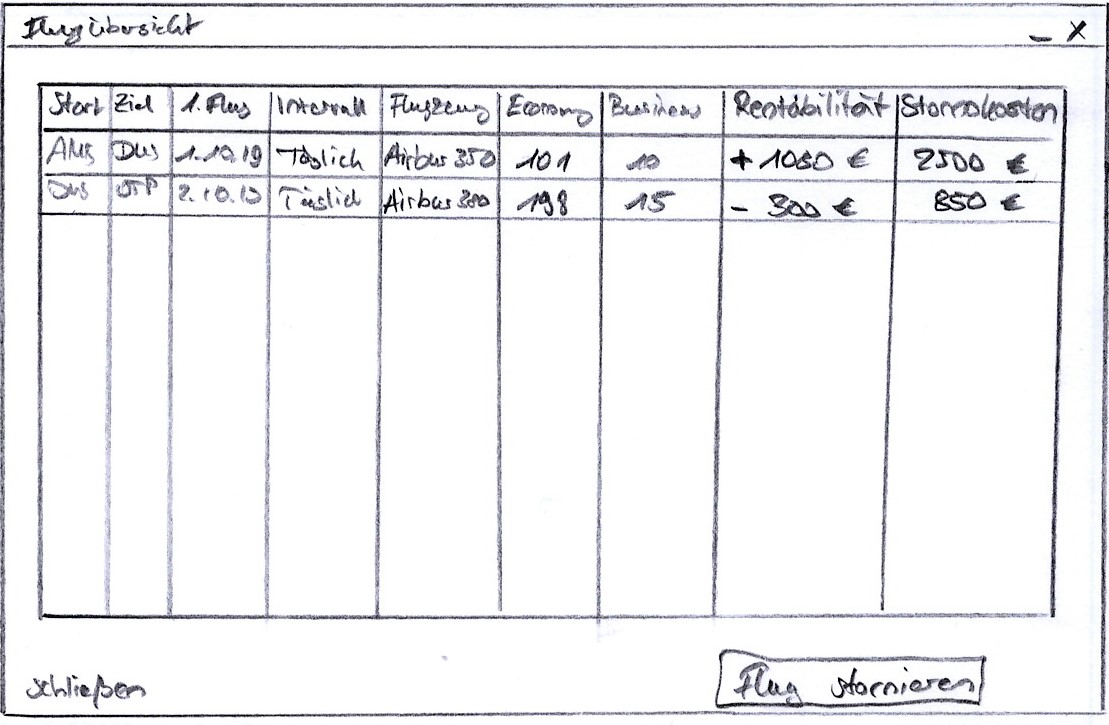 Flugübersicht _ X
Start Ziel 1. Flug Intervall Flugzeug Economy Business Rentabilität Stornokosten
AMS DUS 1.10.19 Täglich Airbus 350 101 10 + 1030 € 2500 €
DUS 2.10.19 Täglich Airbus 380 198 15 - 300 € 850 €
schließen Flug stornieren